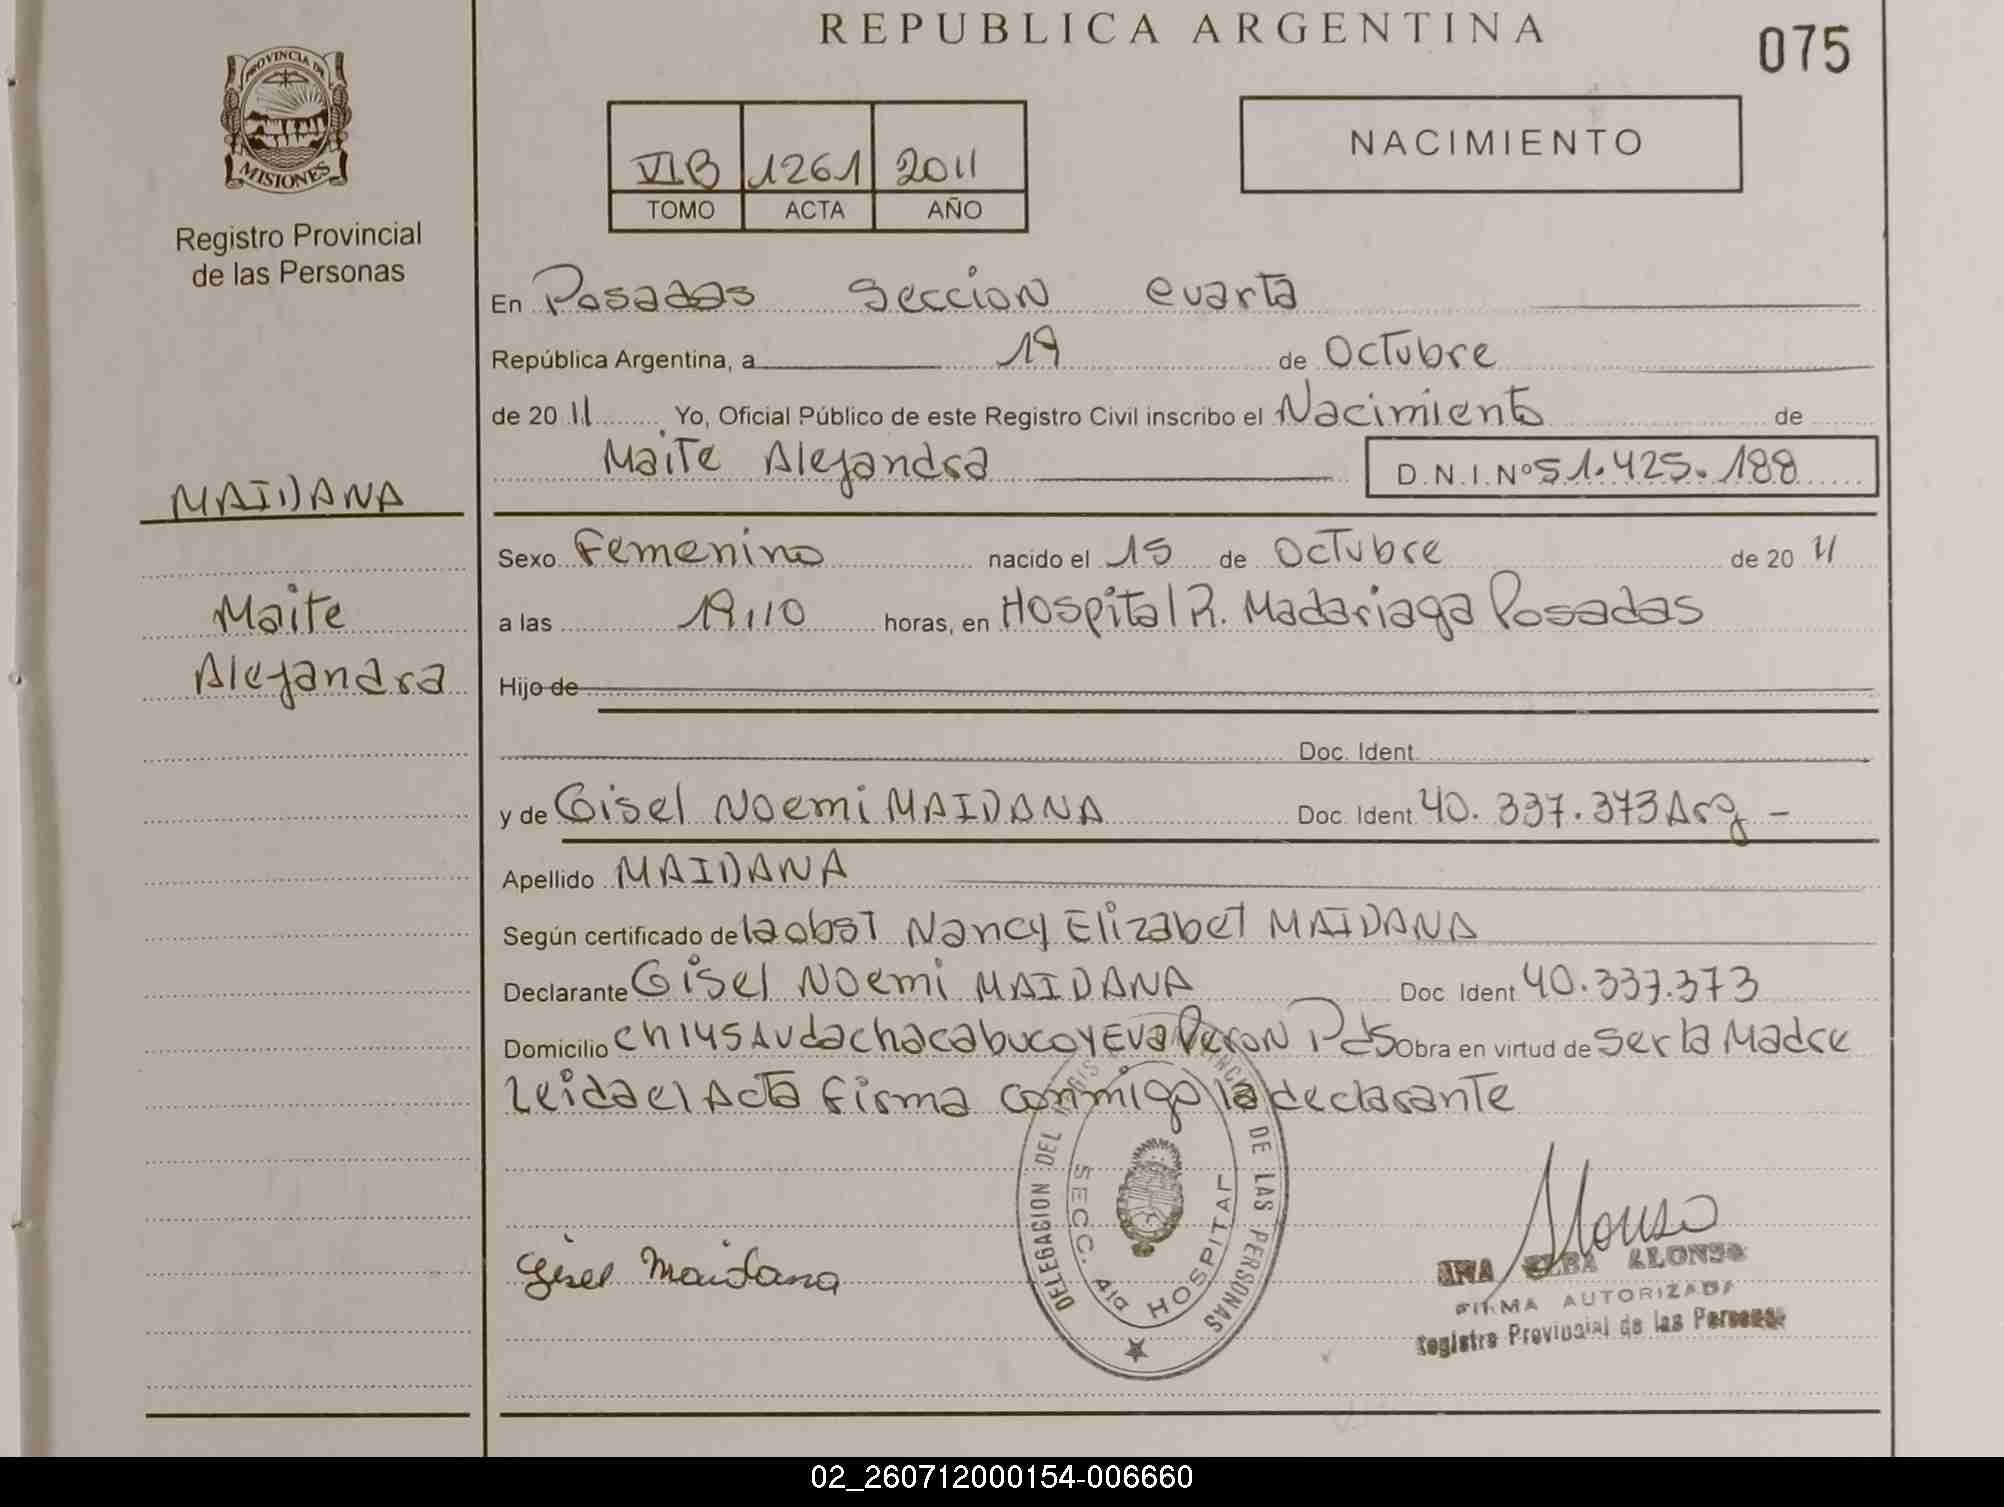 REPUBLICA ARGENTINA
075
PROVINCIA DE
MISIONES
Registro Provincial
de las Personas
VI B 1261 2011
TOMO ACTA AÑO
NACIMIENTO
En Posadas Seccion cuarta
República Argentina, a 19 de Octubre
de 2011 Yo, Oficial Público de este Registro Civil inscribo el Nacimiento de
Maite Alejandra D.N.I.Nº 51.425.188
MAIDANA
Maite
Alejandra
Sexo Femenino nacido el 15 de Octubre de 2011
a las 19,10 horas, en Hospital R. Madariaga Posadas
Hijo de
Doc. Ident.
y de Gisel Noemi MAIDANA Doc. Ident 40.337.373 Arg -
Apellido MAIDANA
Según certificado de la obst Nancy Elizabet MAIDANA
Declarante Gisel Noemi MAIDANA Doc Ident 40.337.373
Domicilio ch 145 Avda chacabuco y Eva Peron Pds Obra en virtud de ser la Madre
Leida el Acta firma conmigo la declarante
DELEGACION DEL DE LAS PERSONAS
SECC. 4ta HOSPITAL
Gisel Maidana
Alonso
ANA ELBA ALONSO
FIRMA AUTORIZADA
Registro Provincial de las Personas
02_260712000154-006660